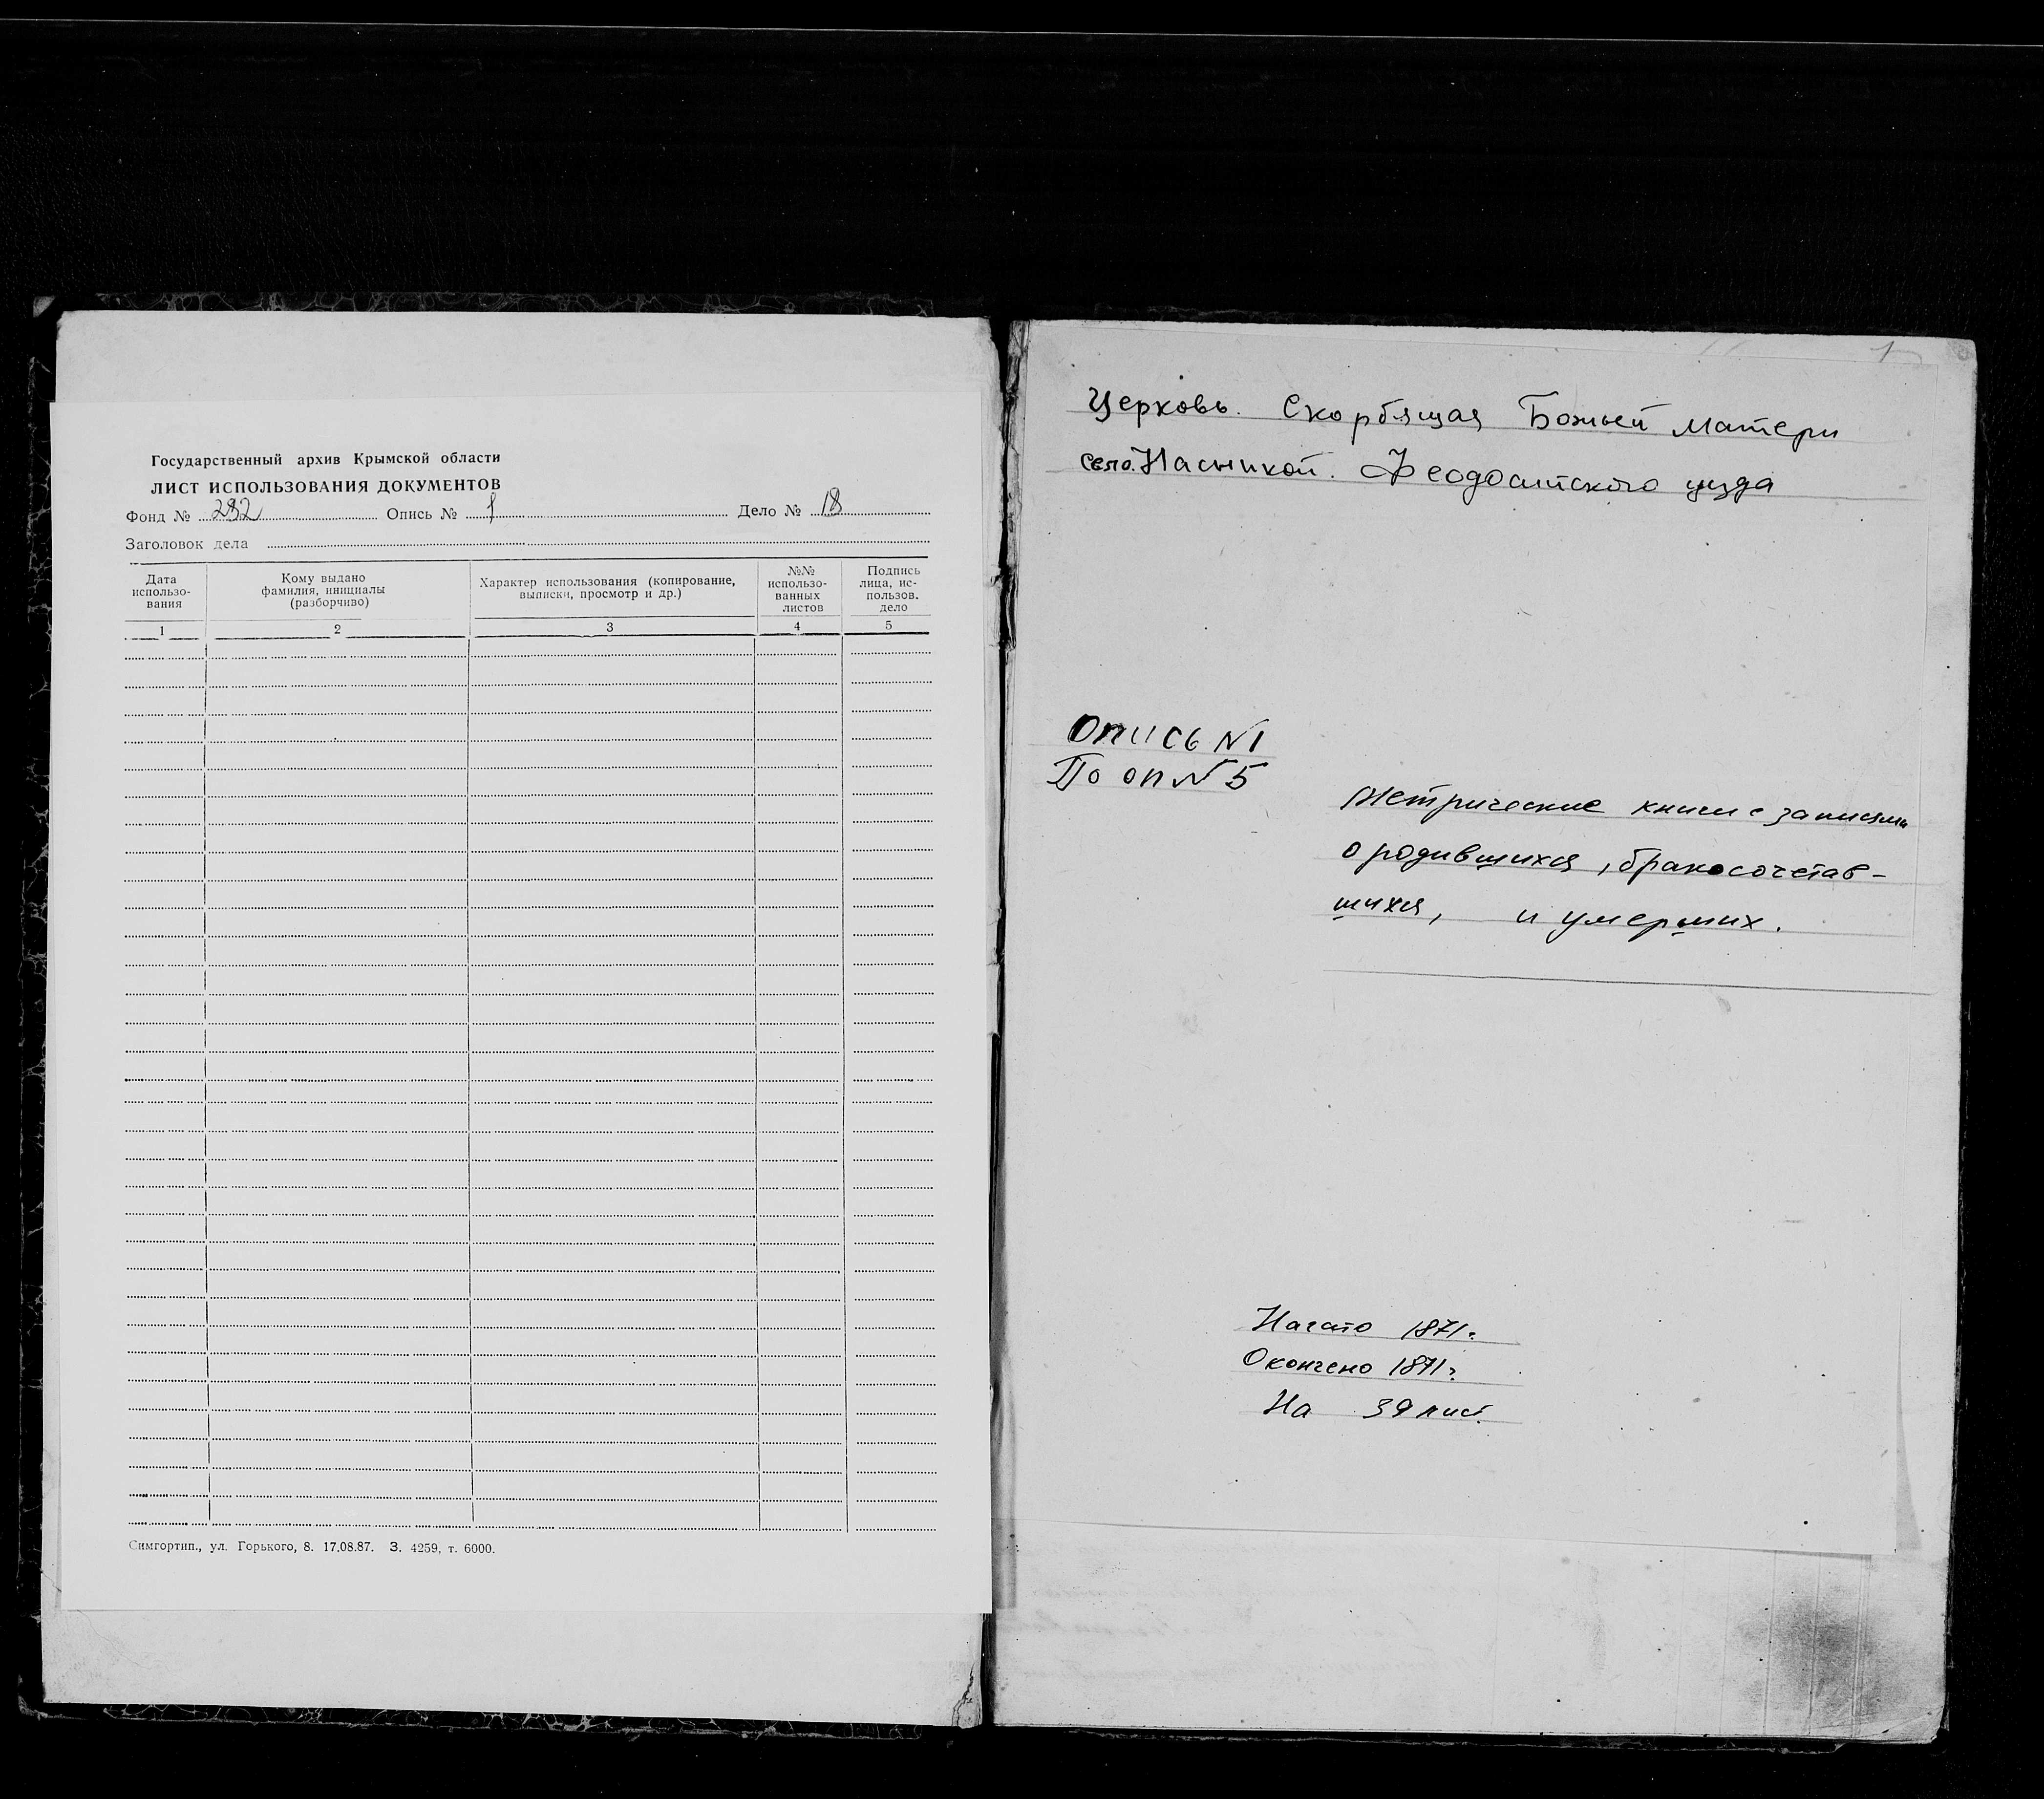 Государственный архив Крымской области
ЛИСТ ИСПОЛЬЗОВАНИЯ ДОКУМЕНТОВ
Фонд № 292 Опись № 1 Дело № 18
Заголовок дела
Дата использо-вания
Кому выдано фамилия, инициалы (разборчиво)
Характер использования (копирование, выписки, просмотр и др.)
№№ использо-ванных листов
Подпись лица, ис-пользов. дело
1 2 3 4 5
Симгортип., ул. Горького, 8. 17.08.87. З. 4259, т. 6000.
1
Церковь. Скорбящая Божьей Матери
село. Насыпкой. Феодосийского уезда
Опись N1
По оп N 5
Метрические книги с записями
о родившихся, бракосочетав-
шихся, и умерших.
Начато 1871г.
Окончено 1871г.
На 39 лист.